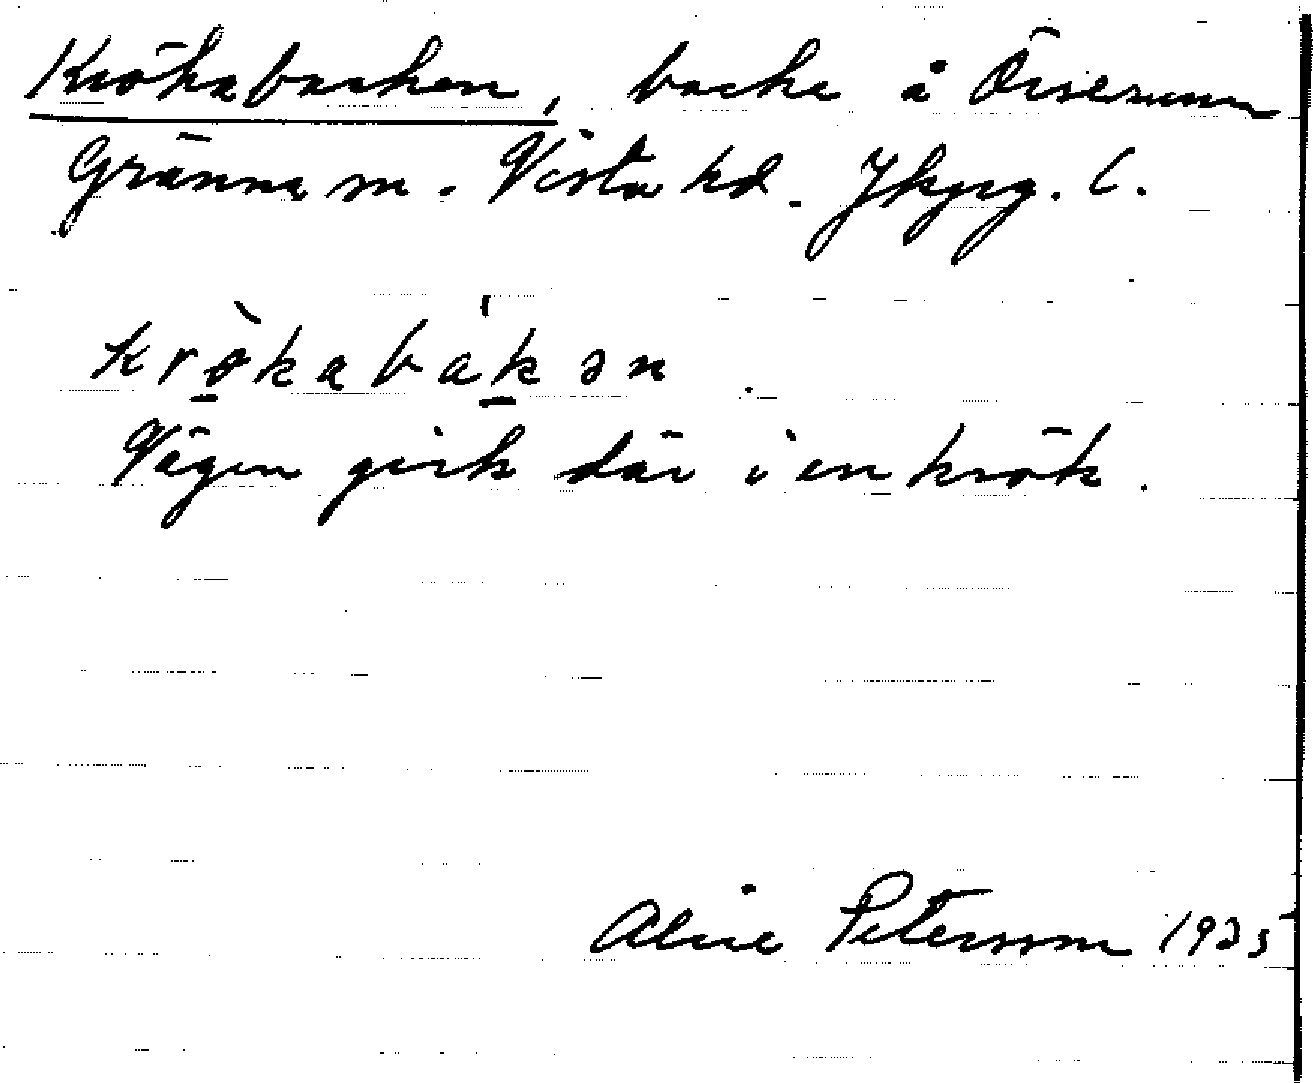 Krökabacken, backe å Öiserum
Gränna sn. Vista hd. Jkpg. l.
krökabakən.
Vägen gick där i en krök.
Alice Petersson 1935